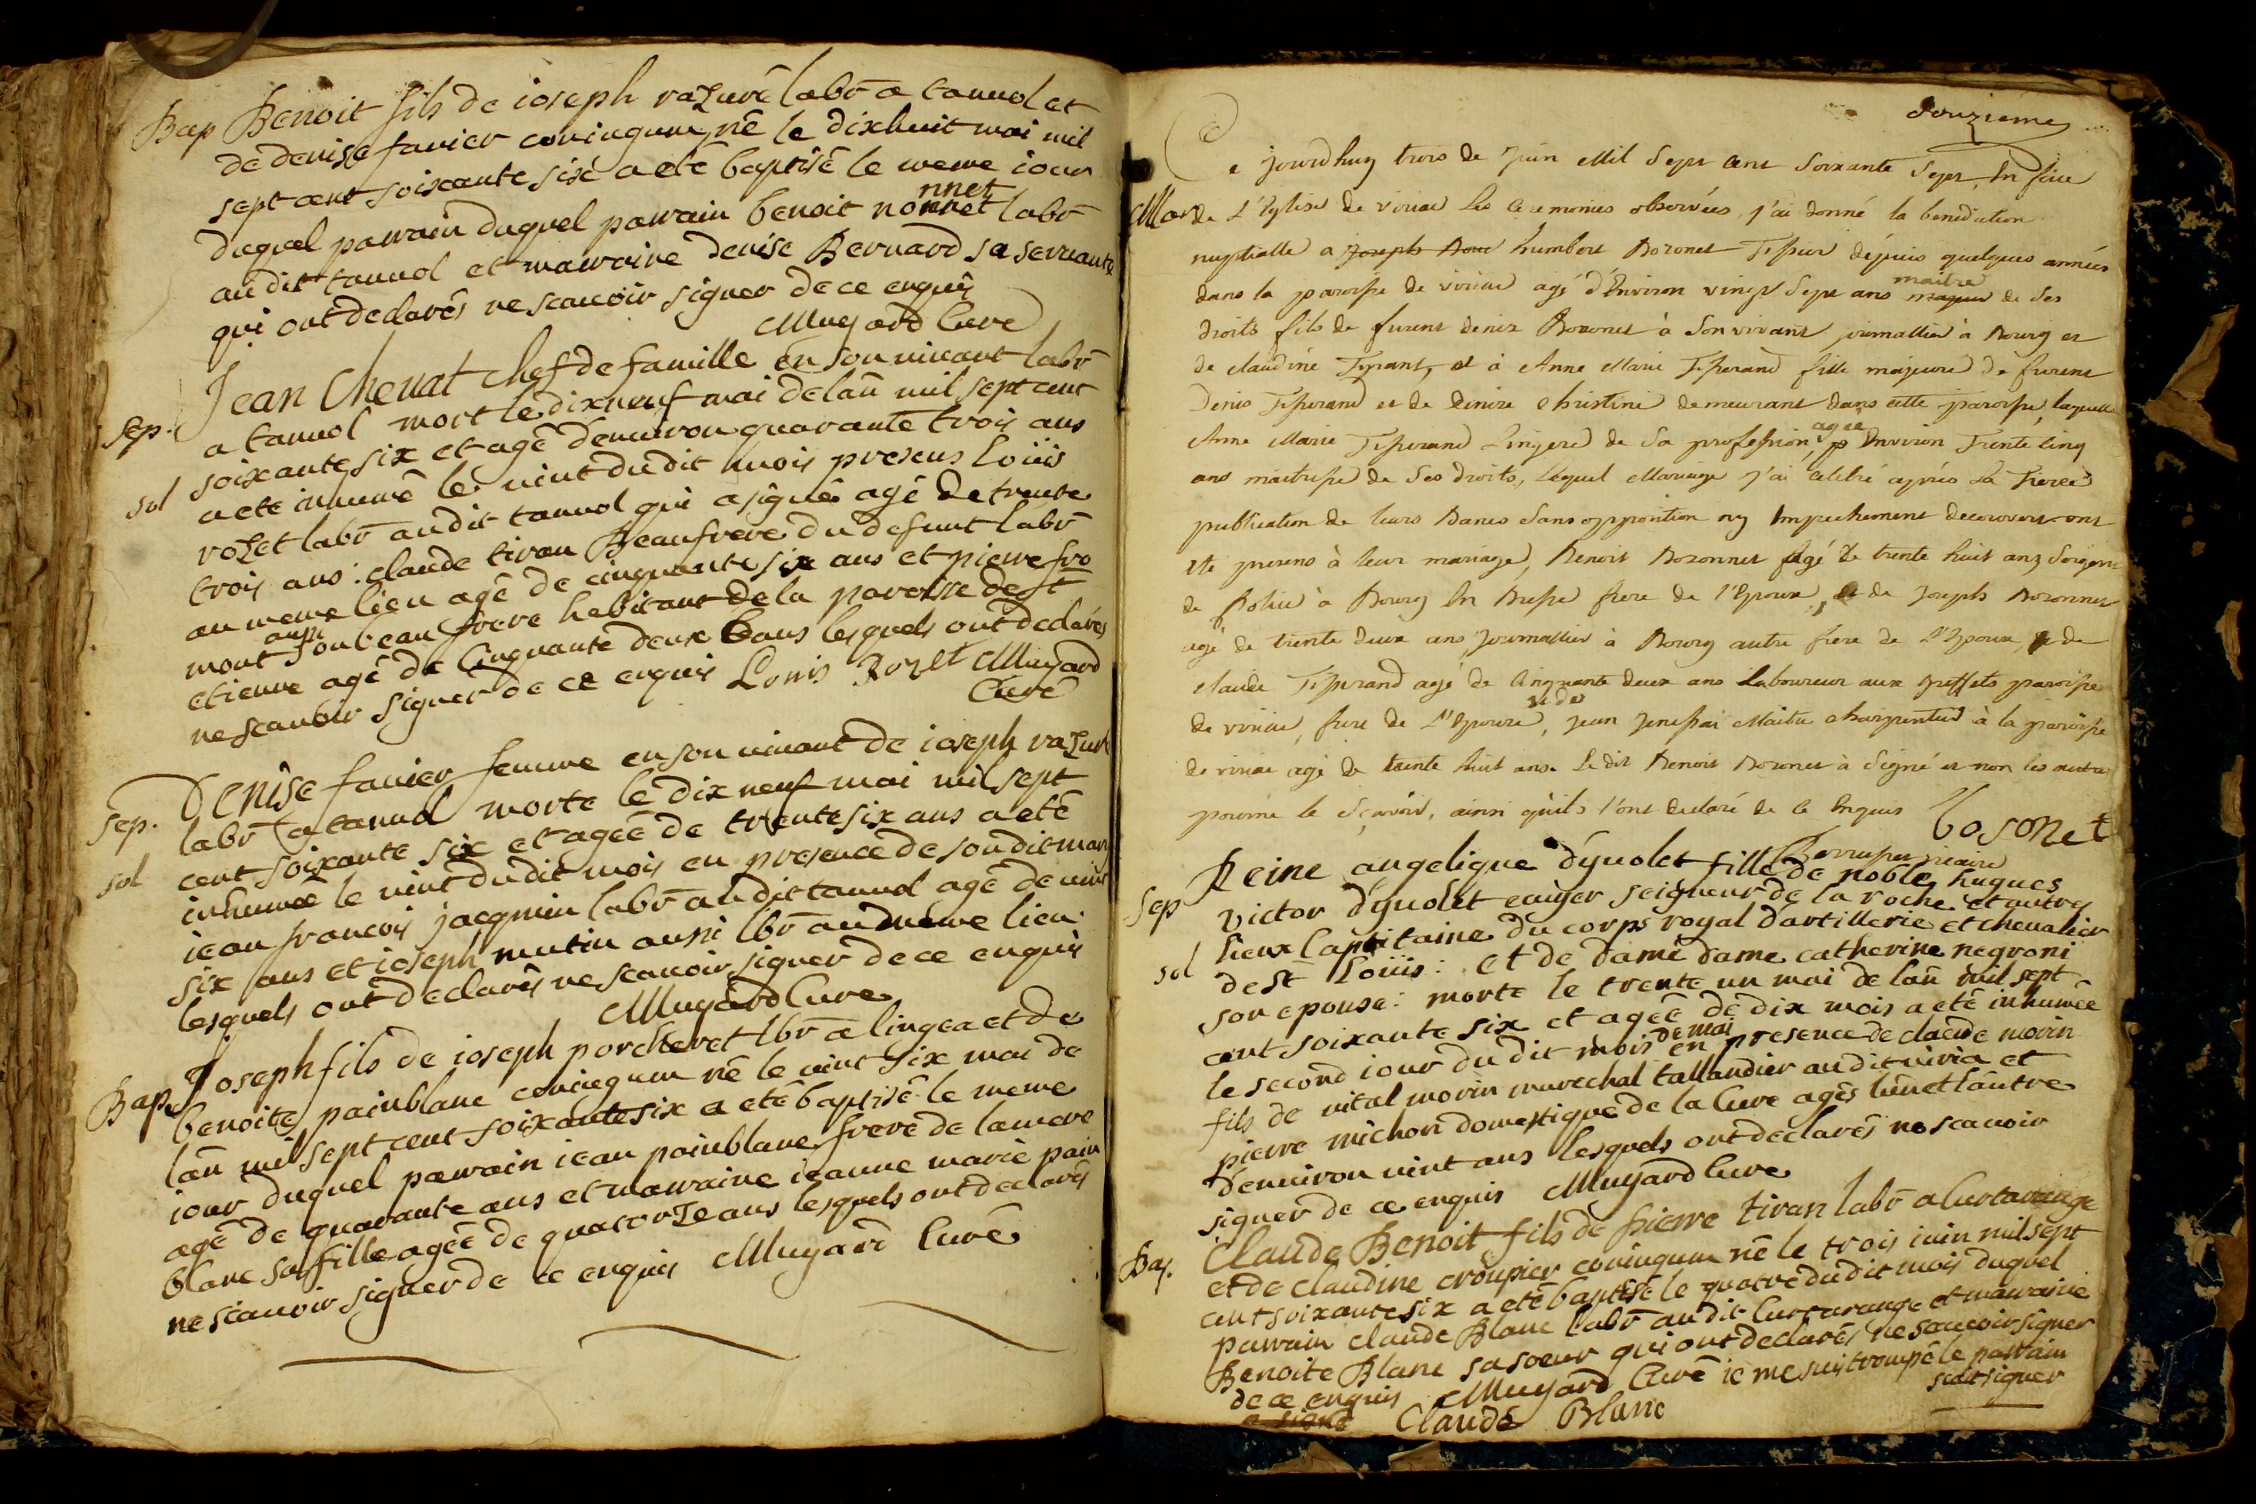 Bap Benoit fils de ioseph razurê labr a tannol et
de denise favier coniugum, nê le dixhuit mai mil
sept cent soixante six a etê baptisê le meme iour
duquel parrain duquel parrain benoit nonnet labr
nnet
audit tannol et marraine denise Bernard sa servante
qui ont declarês ne scauoir signer de ce enquis
Muyard Curê
Jean Chenat Chef de famille en son vivant labr
Sep. a tannol mort le dixneuf mai de lan mil sept cent
soixante six et agê denuiron quarante trois ans
sol a etê inhumê le vint dudit mois presens Loüis
rozet labr audit tannol qui a signê agê de trente
trois ans: claude tiran Beaufrere du defunt labr
au meme lieu agê de cinquante six ans et pierre fro
mont son beaufrere habitant de la paroisse de st
aussi
etienne agê de Cinquante deux ans lesquels ont declarês
ne scauoir signer de ce enquis Louis Rozet Muyard
Curê
Sep. Denise favier femme en son vivant de ioseph razurê
labr a tannol morte le dixneuf mai mil sept
sol cent soixante six et agêe de trente six ans a etê
inhumêe le vint dudit mois en presence de sondit mary
iean francois jacquin labr audit tannol agê de vint
six ans et ioseph mutin aussi lbr au même lieu
lesquels ont declarês ne scauoir signer de ce enquis
Muyard Cure
Bap. Joseph fils de ioseph porcheret lbr a lingea et de
benoite painblanc coniugum nê le vint six mai de
lan mil sept cent soixante six a etê baptisê le meme
iour duquel parrain iean painblanc frere de la mere
agê de quarante ans et marraine ieanne marie pain
blanc sa fille agêe de quatorze ans lesquels ont declarês
ne scauoir signer de ce enquis Muyard Curê
douzieme
Ce jourdhuy trois de juin Mil Sept Cent Soixante Sept, En face
Mar de L'Eglise de viriac les Ceremonies observées, j'ai donné la benediction
nuptialle a Joseph Boz humbert Bozonet Tisseur dépuis quelques années
dans la paroisse de viriac agé d'Environ vingt Sept ans maitre de Ses
droits fils de furent denis Bozonet à Son vivant journallier à Bourg et
de claudine Tyrant, et à Anne Marie Tisserand fille majeure de furent
Denis Tisserand et de Denize Christine demeurant dans cette paroisse, laquelle
Anne Marie Tisserand Lingere de Sa profession, agée d'Environ Trente Cinq
ans maitresse de Ses droits, Lequel Mariage j'ai celebré après la Tierce
publication de leurs Bancs Sans opposition ny Empechement decouvert ont
eté presens à leur mariage, Benoit Bozonnet agé de trente huit ans Sergent
de Police à Bourg En Bresse frere de l'Epoux, de Joseph Bozonnet
agé de trente deux ans, Journallier à Bourg autre frere de L'Epoux, de
Claude Tisserand agé de Cinquante deux ans Laboureur aux greffets paroisse
de viriac, frere de L'Epouse, et de jean Maitre charpentier à la paroisse
de viriac agé de trente huit ans. Ledit Benoit Bozonet à Signé et non les autres
pour ne le Sçavoir, ainsi qu'ils l'ont declaré de ce Enquis bosonet
vicaire
Sep Reine angelique d'yuolet fille de noble hugues
victor d'yuolet ecuyer seigneur de la roche et autres
sol lieux Capitaine du corps royal dartillerie et chevalier
de st Loüis: et de dame dame catherine negroni
son epouse: morte le trente un mai de lan mil sept
cent soixante six et agêe de dix mois a etê inhumêe
le second iour du dit mois de mai en presence de claude morin
fils de vital morin marechal taillandier audit viria et
pierre michon domestique de la Cure agês lun et lautre
denuiron vint ans lesquels ont declarês ne scauoir
signer de ce enquis Muyard Cure
Bap. Claude Benoit fils de pierre tiran labr a Curtarange
et de claudine croupier coniugum nê le trois iuin mil sept
cent soixante six a etê baptisê le quatre dudit mois duquel
parrain claude Blanc labr audit Curtarange et marraine
Benoite Blanc sa soeur qui ont declarês ne scauoir signer
de ce enquis Muyard Curê ie me suis trompê le parrain
a signê Claude Blanc scait signer